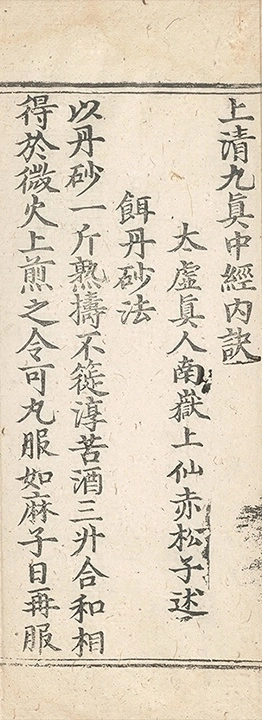 上清九眞中經內訣
太虛眞人南嶽上仙赤松子述
餌丹砂法
以丹砂一斤熟擣下簁淳苦酒三升合和相
得於微火上煎之令可丸服如麻子日再服